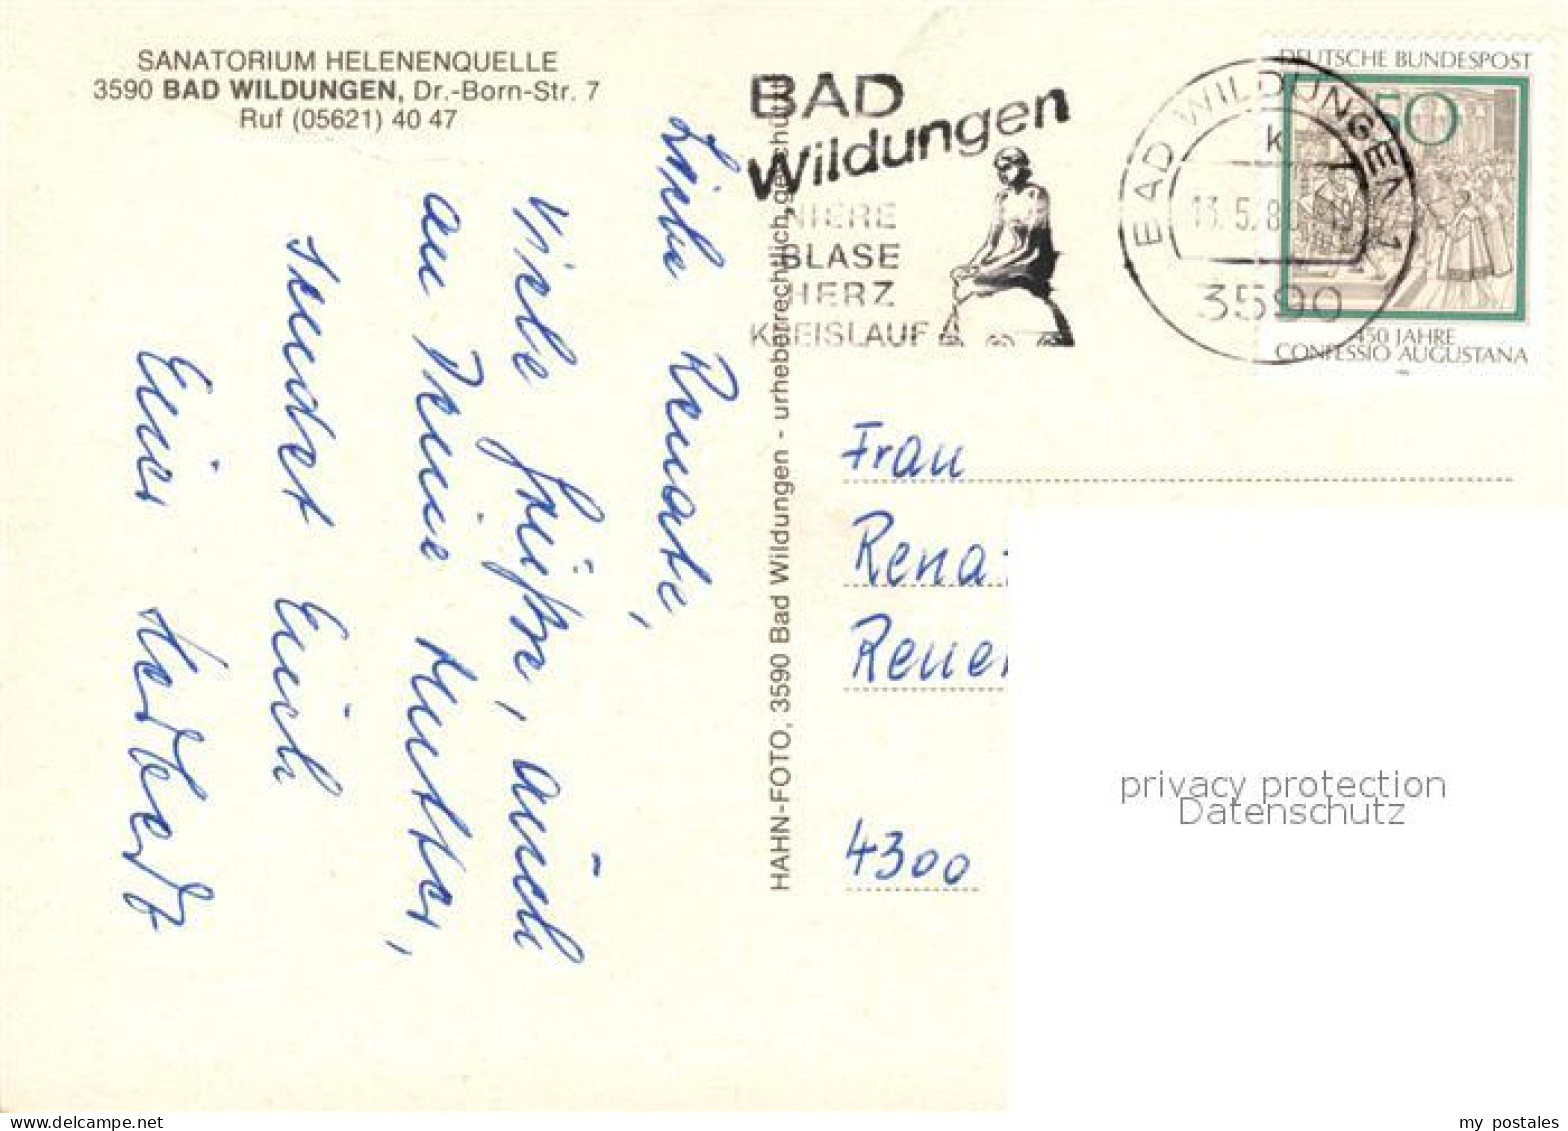 SANATORIUM HELENENQUELLE
3590 BAD WILDUNGEN, Dr.-Born-Str. 7
Ruf (05621) 40 47
Liebe Renate,
Viele Grüße, auch
an Deine Mutter,
sendet Euch
Euer Herbert
HAHN-FOTO, 3590 Bad Wildungen - urheberrechtlich geschützt
BAD
Wildungen
NIERE
BLASE
HERZ
KREISLAUF
BAD WILDUNGEN 1
k
3590
DEUTSCHE BUNDESPOST
50
450 JAHRE
CONFESSIO AUGUSTANA
Frau
Rena
4300
privacy protection
Datenschutz
my postales